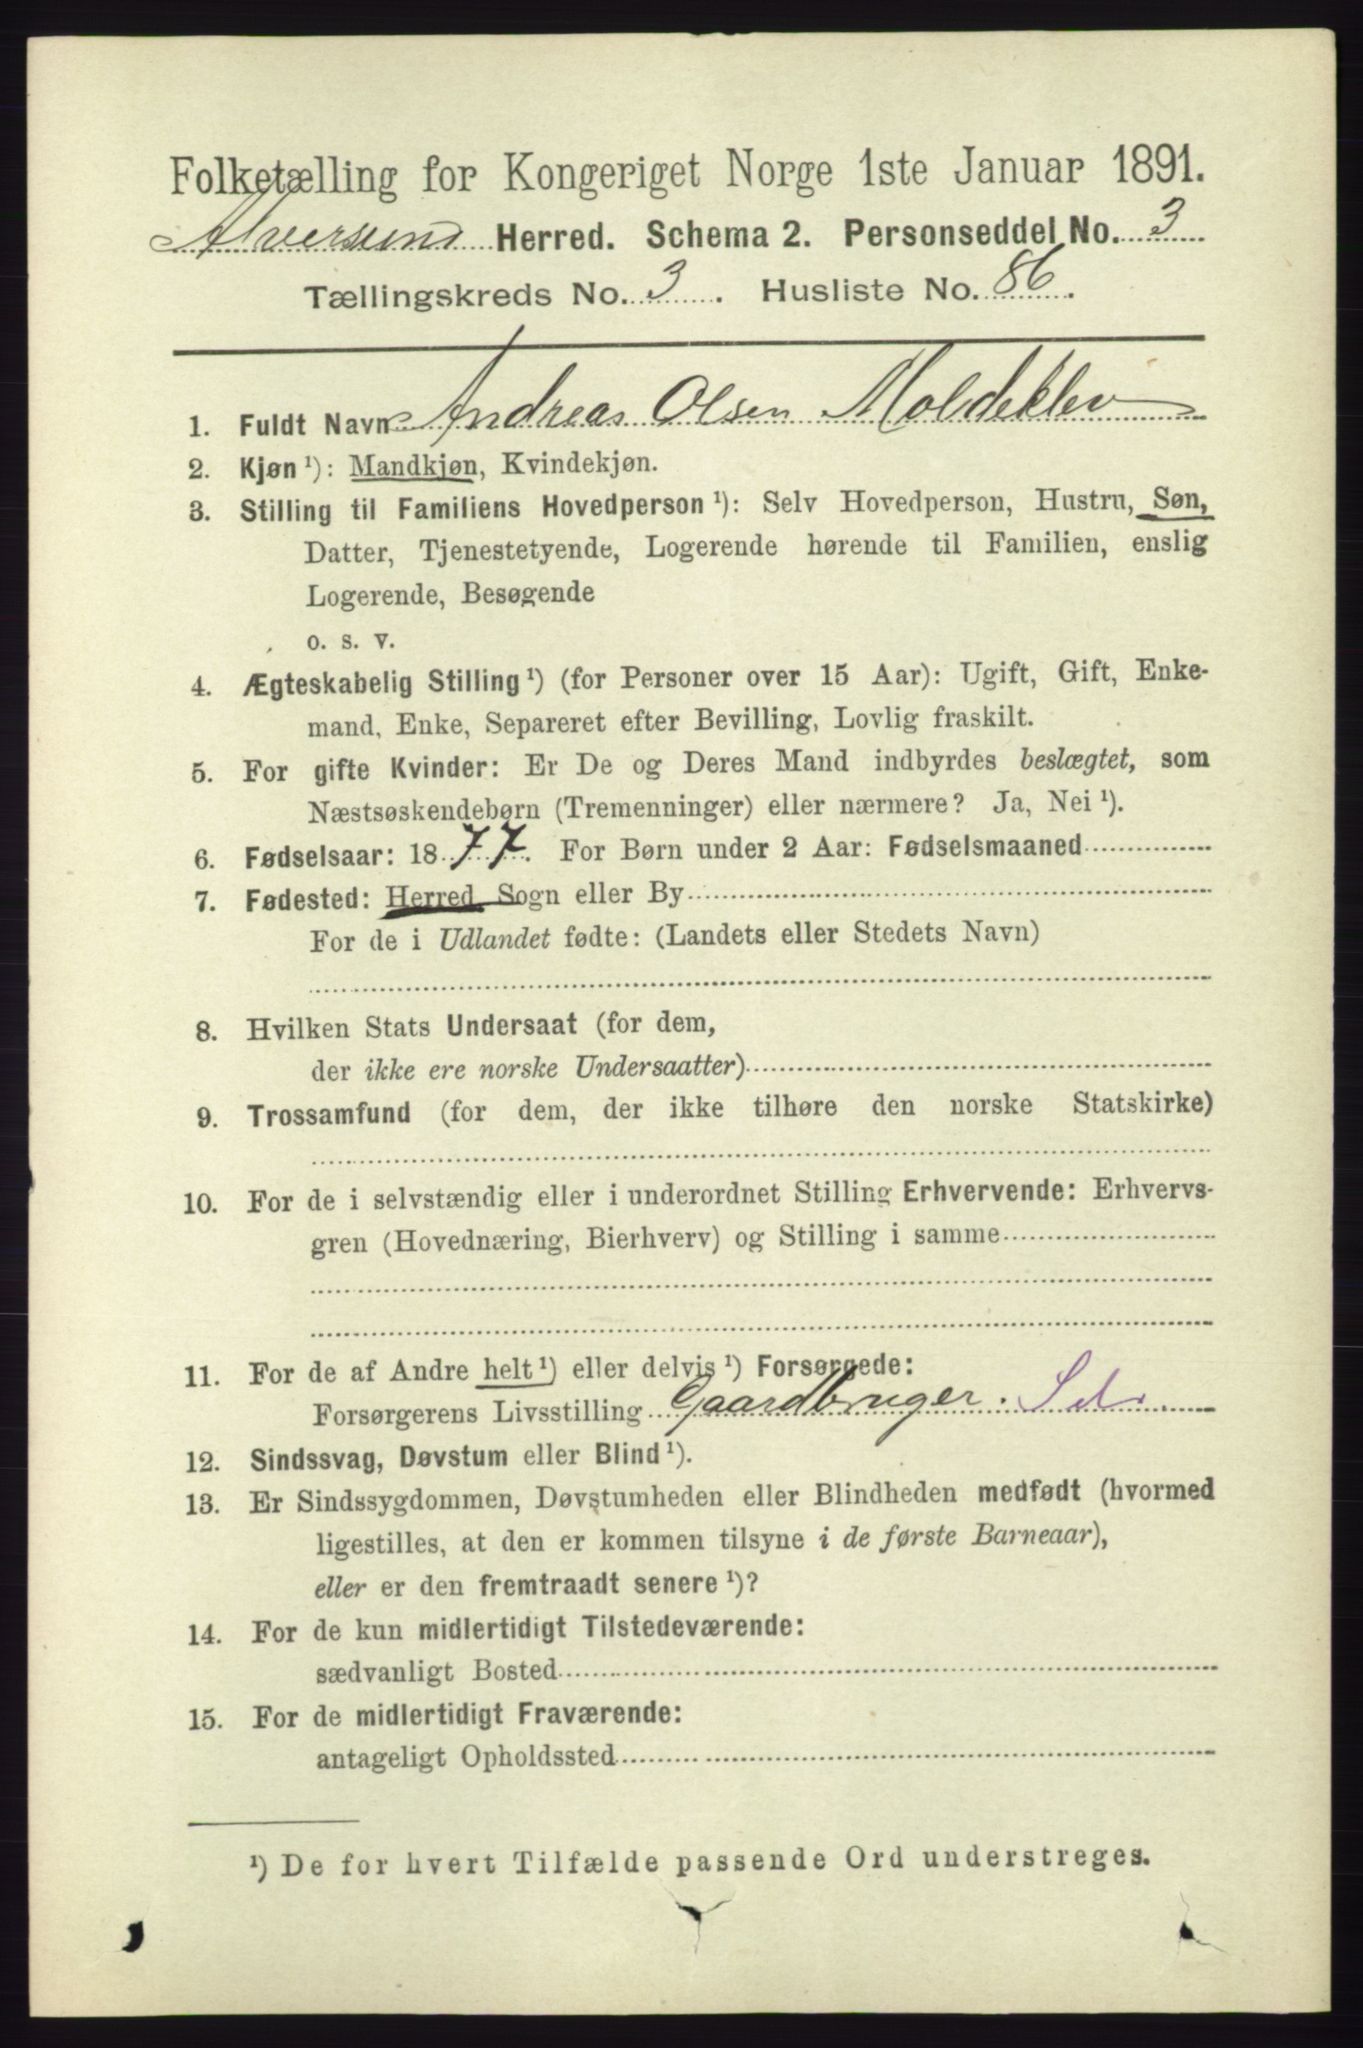 Folketælling for Kongeriget Norge 1ste Januar 1891.
Alversund Herred. Schema 2. Personseddel No. 3
Tællingskreds No. 3. Husliste No. 86.
1. Fuldt Navn Andreas Olsen Moldeklev
2. Kjøn ¹): Mandkjøn, Kvindekjøn.
3. Stilling til Familiens Hovedperson ¹): Selv Hovedperson, Hustru, Søn,
Datter, Tjenestetyende, Logerende hørende til Familien, enslig
Logerende, Besøgende
o. s. v.
4. Ægteskabelig Stilling ¹) (for Personer over 15 Aar): Ugift, Gift, Enke-
mand, Enke, Separeret efter Bevilling, Lovlig fraskilt.
5. For gifte Kvinder: Er De og Deres Mand indbyrdes beslægtet, som
Næstsøskendebørn (Tremenninger) eller nærmere? Ja, Nei ¹).
6. Fødselsaar: 1877. For Børn under 2 Aar: Fødselsmaaned
7. Fødested: Herred, Sogn eller By
For de i Udlandet fødte: (Landets eller Stedets Navn)
8. Hvilken Stats Undersaat (for dem,
der ikke ere norske Undersaatter)
9. Trossamfund (for dem, der ikke tilhøre den norske Statskirke)
10. For de i selvstændig eller i underordnet Stilling Erhvervende: Erhvervs-
gren (Hovednæring, Bierhverv) og Stilling i samme
11. For de af Andre helt ¹) eller delvis ¹) Forsørgede:
Forsørgerens Livsstilling Gaardbruger. Sel.
12. Sindssvag, Døvstum eller Blind ¹).
13. Er Sindssygdommen, Døvstumheden eller Blindheden medfødt (hvormed
ligestilles, at den er kommen tilsyne i de første Barneaar),
eller er den fremtraadt senere ¹)?
14. For de kun midlertidigt Tilstedeværende:
sædvanligt Bosted
15. For de midlertidigt Fraværende:
antageligt Opholdssted
¹) De for hvert Tilfælde passende Ord understreges.